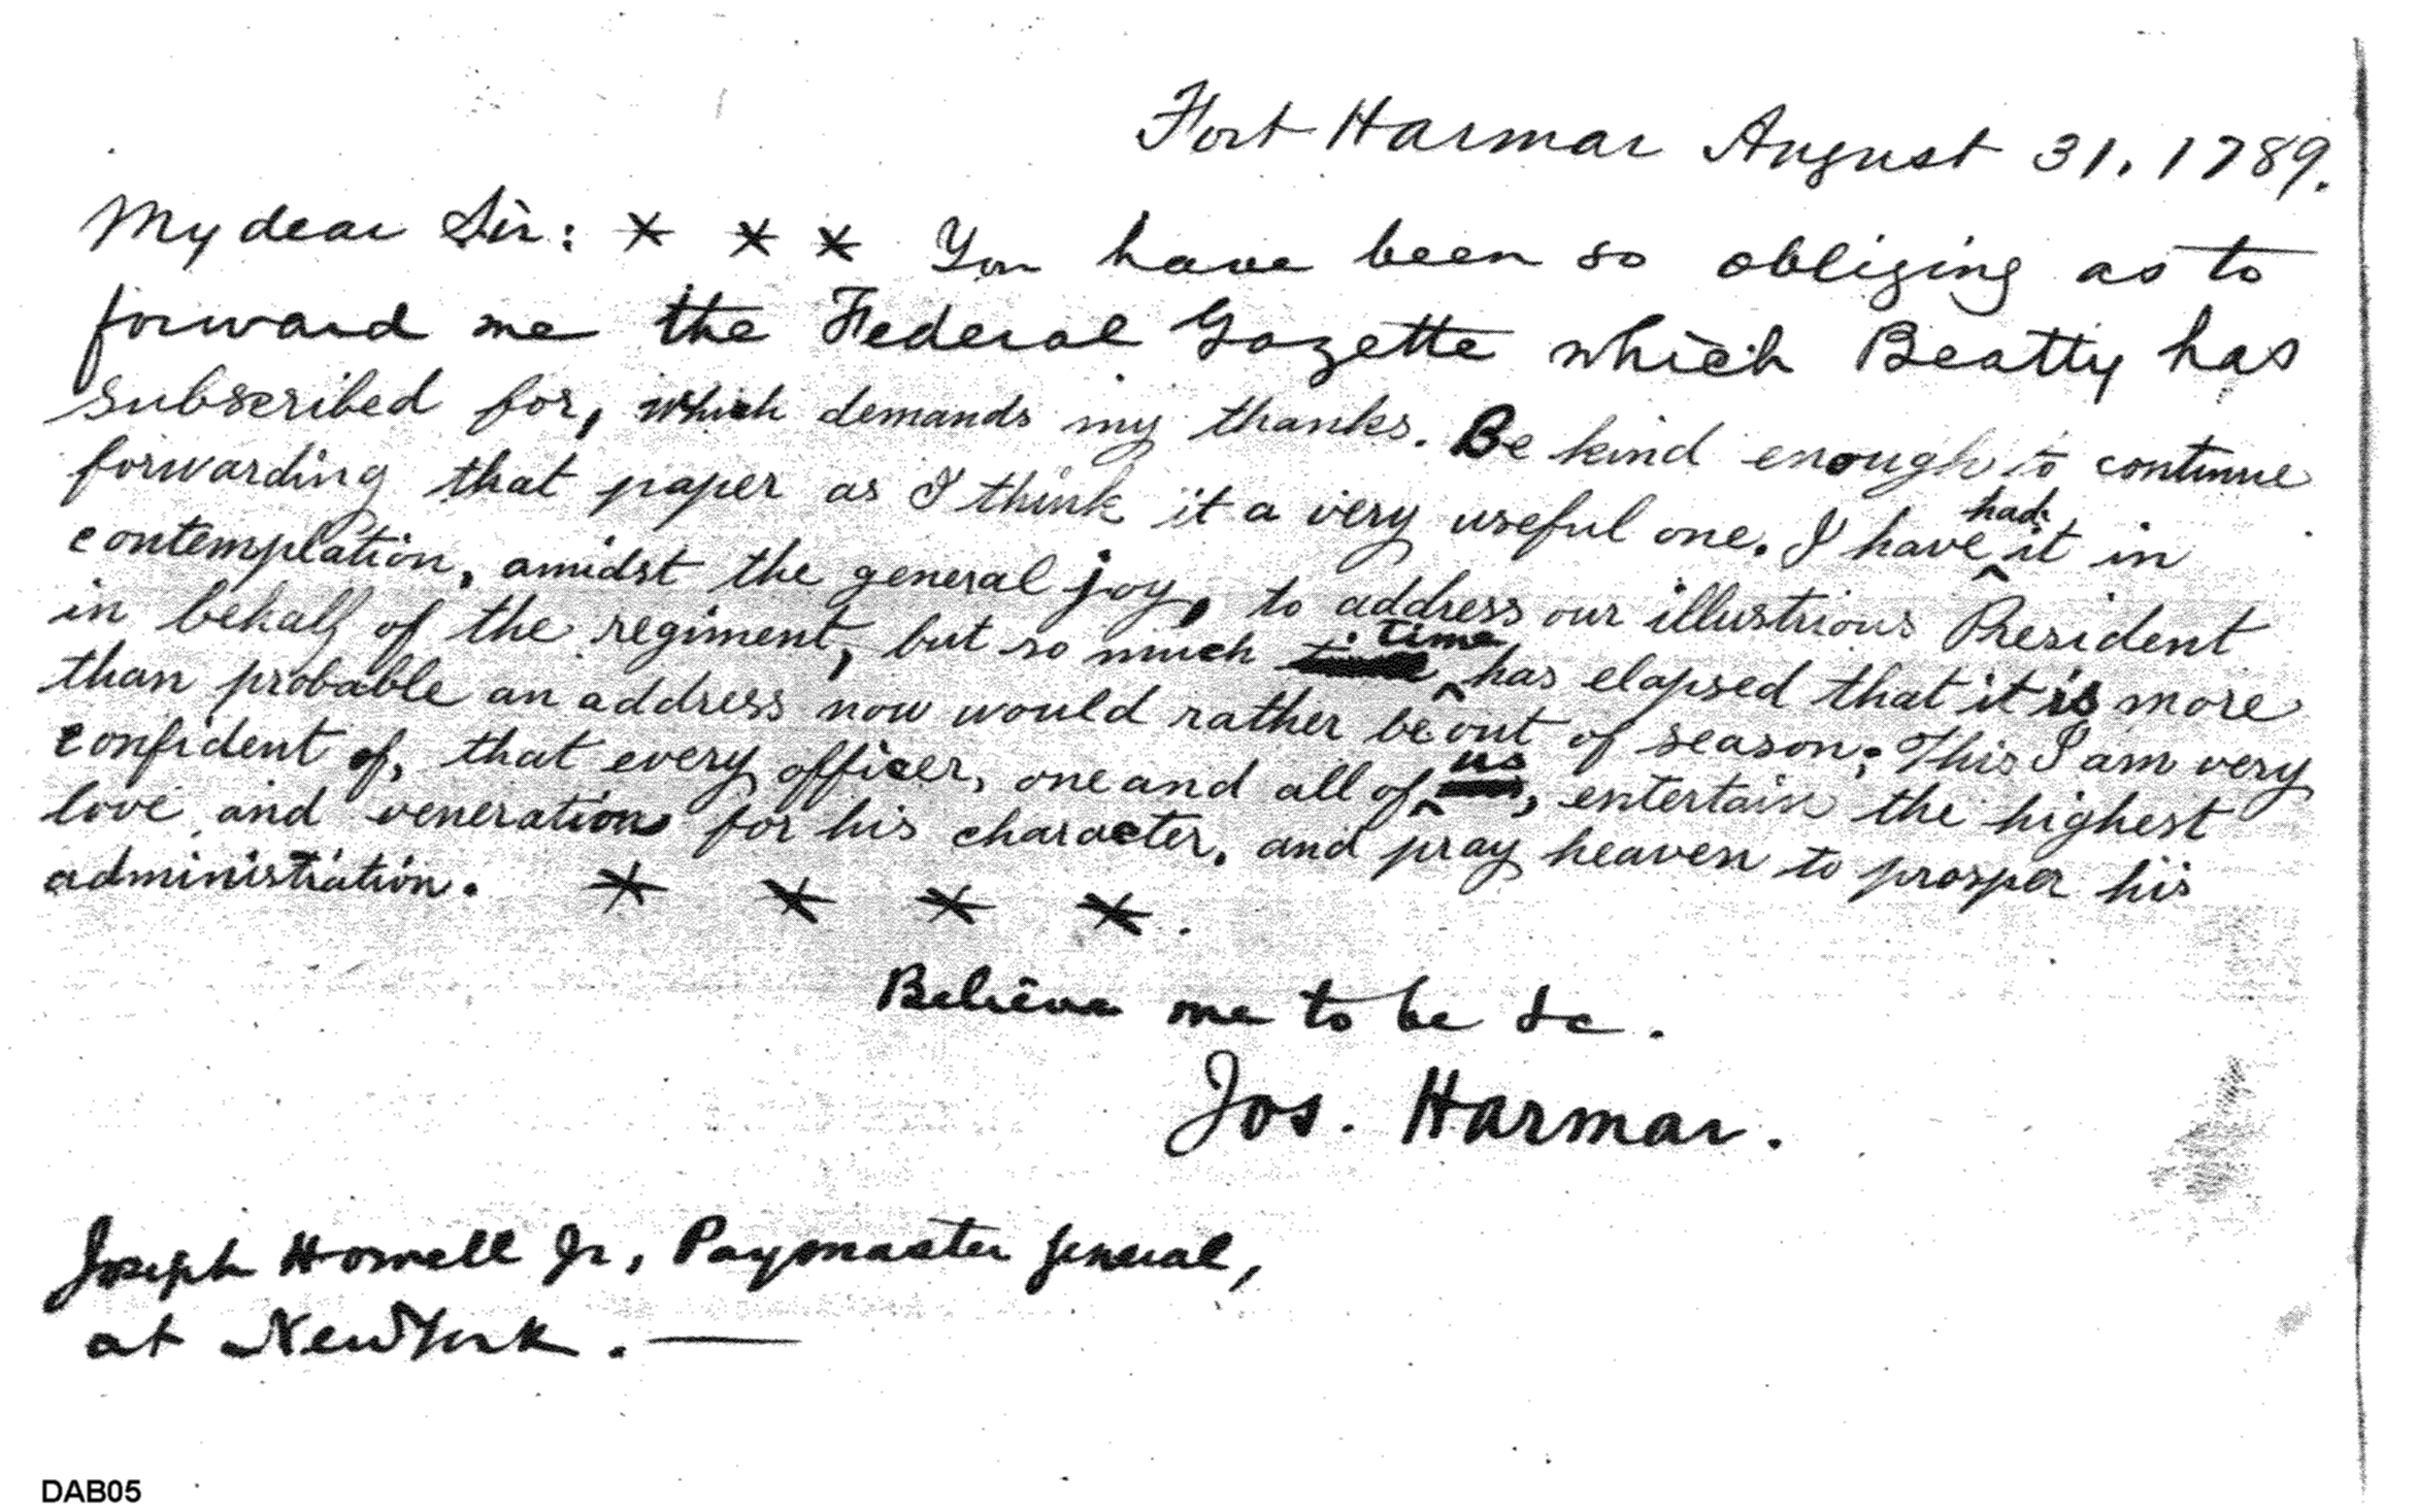 Fort Harmar August 31, 1789.
My dear Sir: * * * You have been so obliging as to
forward me the Federal Gazette which Beatty has
subscribed for, which demands my thanks. Be kind enough to continue
forwarding that paper as I think it a very useful one. I have had it in
contemplation, amidst the general joy, to address our illustrious President
in behalf of the regiment, but so much time has elapsed that it is more
than probable an address now would rather be out of season; This I am very
confident of, that every officer, one and all of us, entertain the highest
love and veneration for his character, and pray heaven to prosper his
administration. * * * *.
Believe me to be &c.
Jos. Harmar.
Joseph Howell Jr, Paymaster general,
at New York. —
DAB05